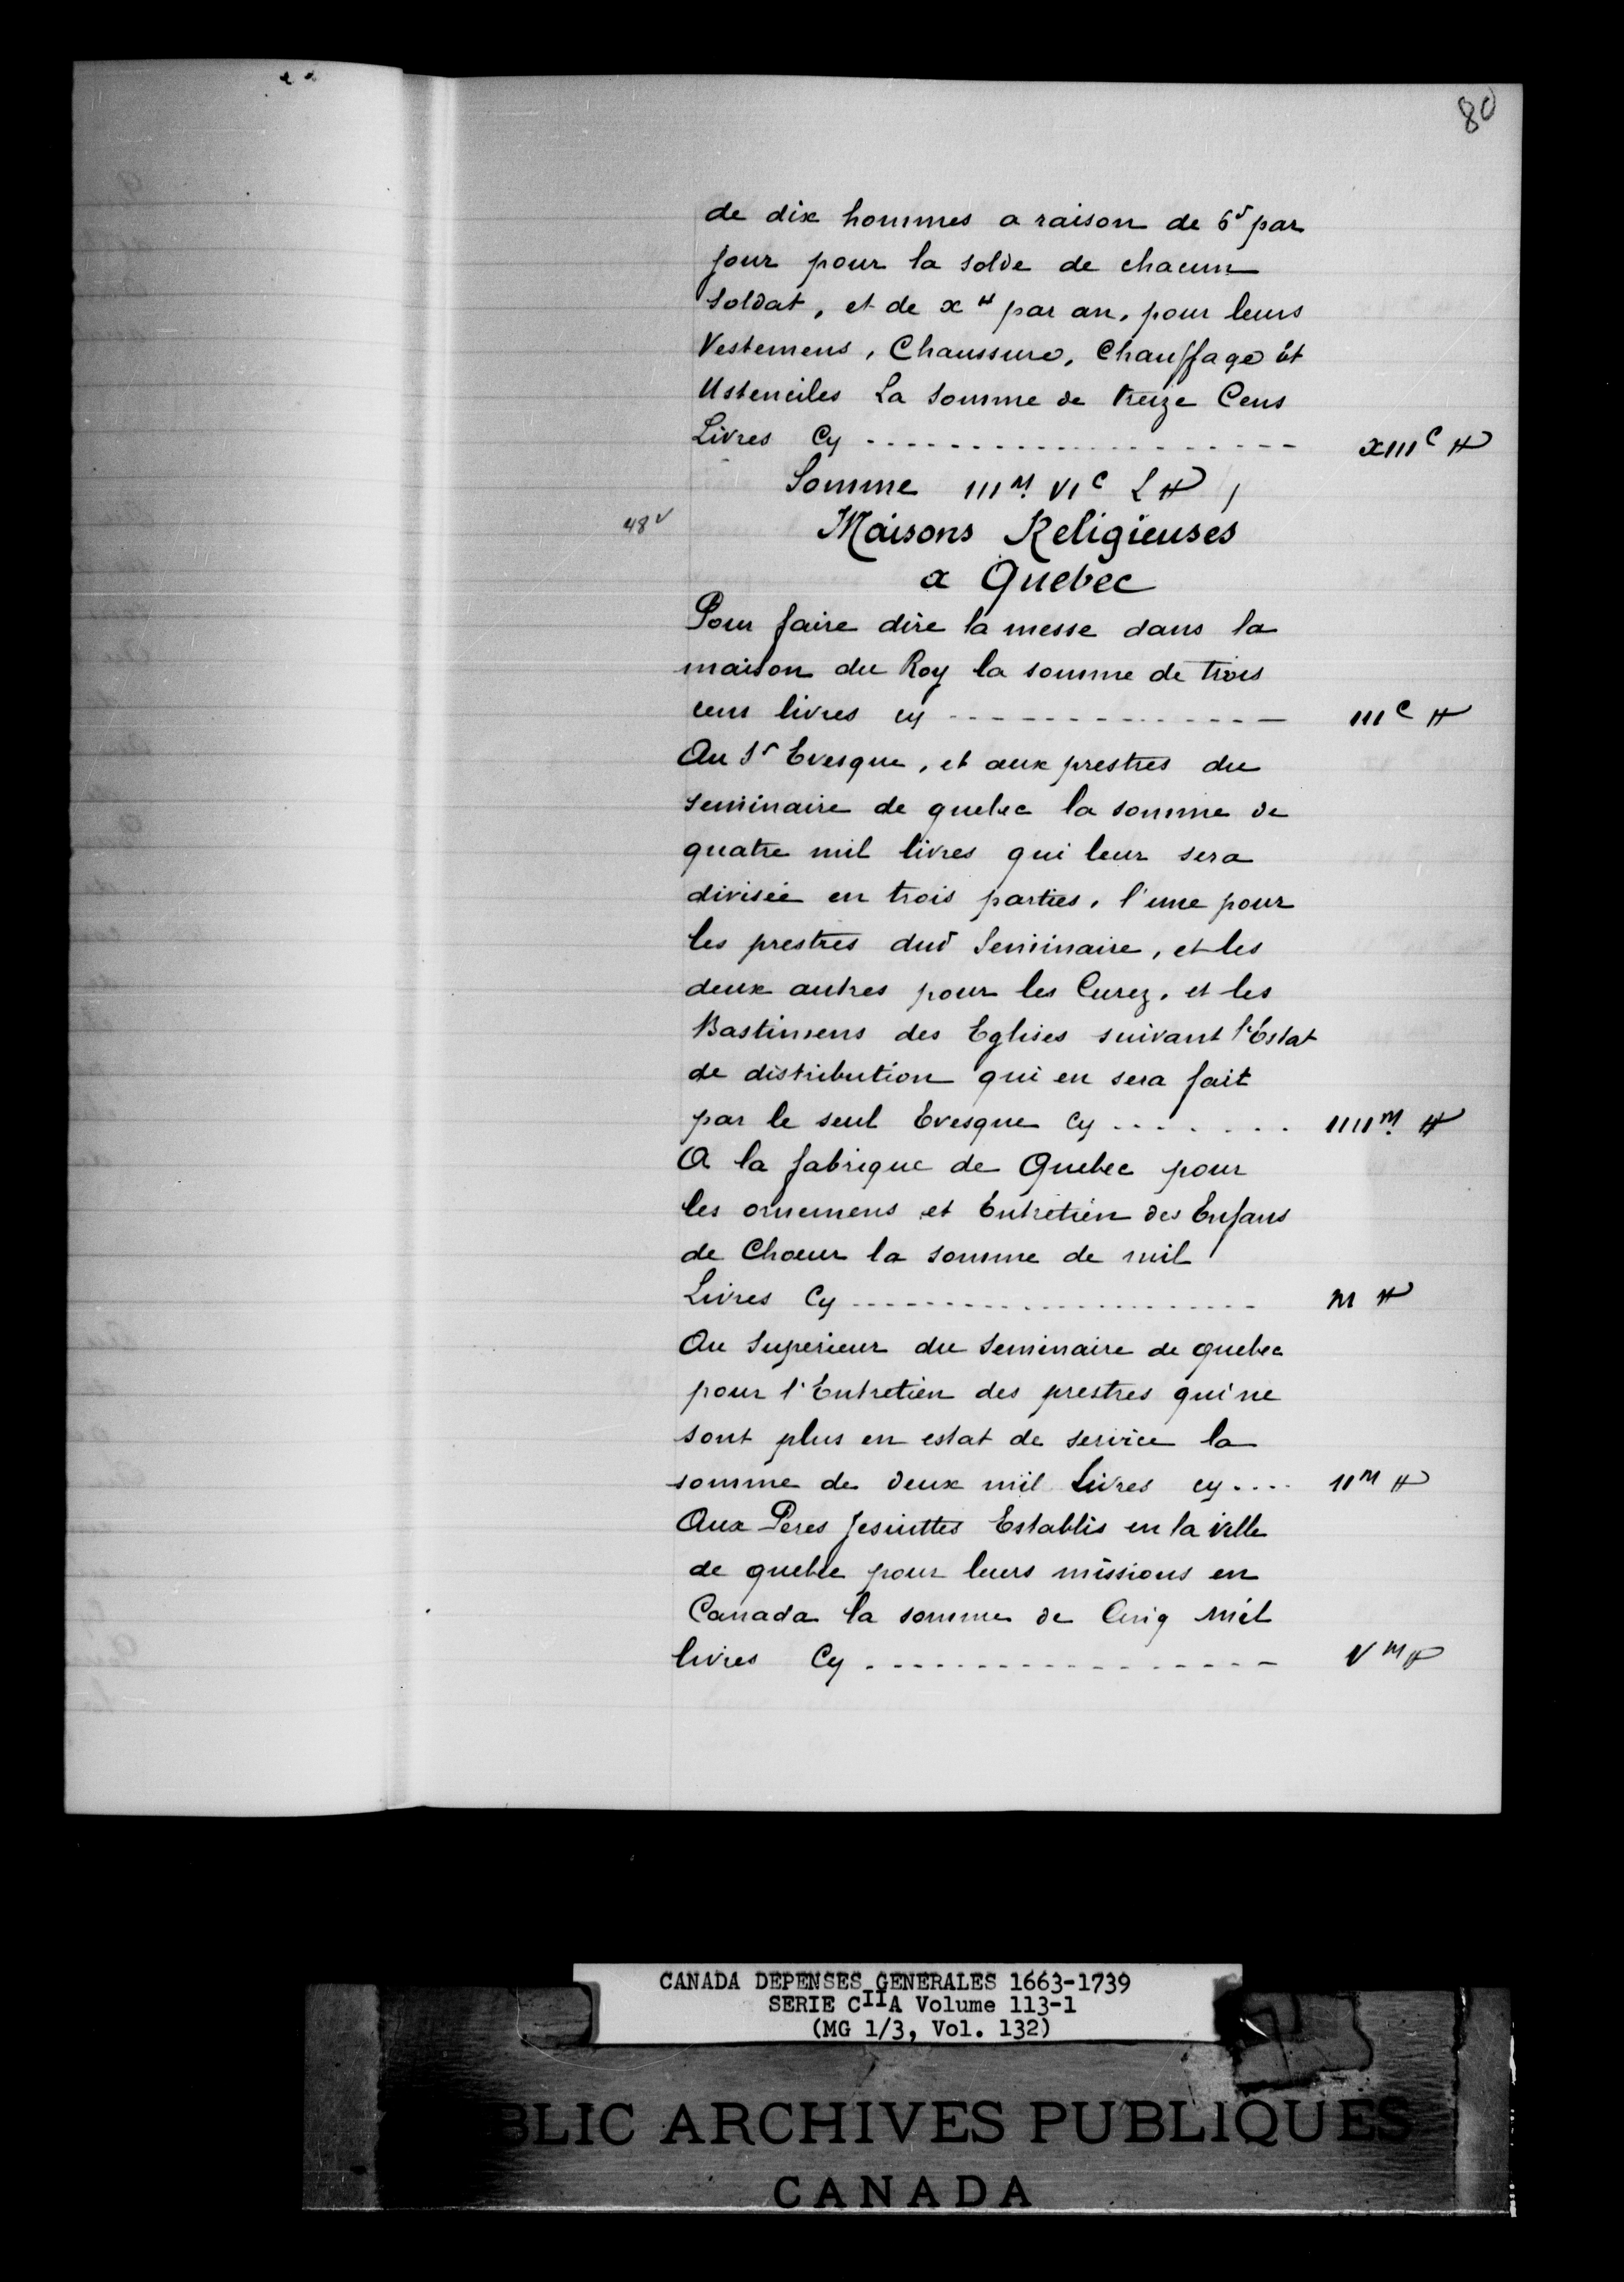 80
de dix hommes a raison de 6s par
jour pour la solde de chacun
soldat, et de x ₶ par an, pour leurs
Vestemens, Chaussure, Chauffage Et
Ustenciles La somme de treize Cens
Livres Cy -------------------- XIIIC ₶
Somme IIIM VIC L ₶
48v
Maisons Religieuses
a Quebec
Pour faire dire la messe dans la
maison du Roy la somme de trois
cens livres cy -------------- IIIC ₶
Au Sr Evesque, et aux prestres du
seminaire de quebec la somme de
quatre mil livres qui leur sera
divisée en trois parties, l'une pour
les prestres dud Seminaire, et les
deux autres pour les Curez, et les
Bastimens des Eglises suivant l'Estat
de distribution qui en sera fait
par le seul Evesque Cy ........ IIIIM ₶
A la fabrique de Quebec pour
les ornemens et Entretien des Enfans
de Choeur la somme de mil
Livres Cy -------------------- M ₶
Au Superieur du Seminaire de quebec
pour l'Entretien des prestres qui ne
sont plus en estat de service la
somme de deux mil Livres cy .... IIM ₶
Aux Peres Jesuittes Establis en la ville
de quebec pour leurs missions en
Canada la somme de Cinq mil
livres Cy ------------------ VM ₶
CANADA DEPENSES GENERALES 1663-1739
SERIE CIIA Volume 113-1
(MG 1/3, Vol. 132)
BLIC ARCHIVES PUBLIQUES
CANADA